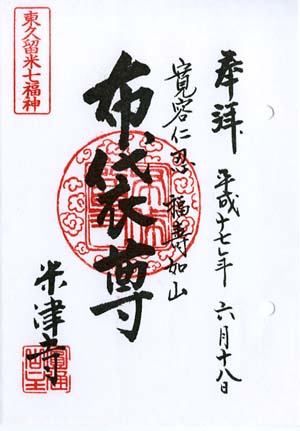 奉拝 平成十七年 六月十八日
寛容仁忍 福寿如山
布袋尊
米津寺
東久留米七福神